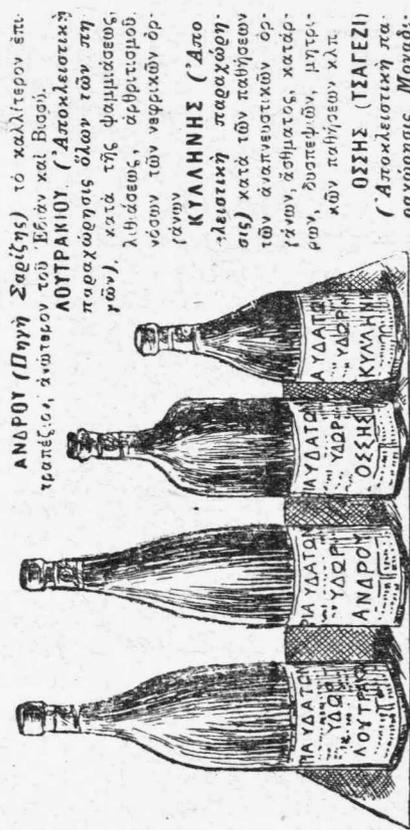 ΑΝΔΡΟΥ (Πηγὴ Σαρίζης) τὸ καλλίτερον ἐπι-
τραπέζιον, ἀνώτερον τοῦ Ἐβιὰν καὶ Βισσύ.
ΛΟΥΤΡΑΚΙΟΥ (Ἀποκλειστικὴ
παραχώρησις ὅλων τῶν πη-
γῶν), κατὰ τῆς ψαμμιάσεως,
λιθιάσεως, ἀρθριτισμοῦ,
νόσων τῶν νεφρικῶν ὀρ-
γάνων
ΚΥΛΛΗΝΗΣ (Ἀπο
κλειστικὴ παραχώρη-
σις) κατὰ τῶν παθήσεων
τῶν ἀναπνευστικῶν ὀρ-
γάνων, ἄσθματος, κατάρ-
ρων, δυσπεψιῶν, μητρι-
κῶν παθήσεων κλπ.
ΟΣΣΗΣ (ΤΣΑΓΕΖΙ)
(Ἀποκλειστικὴ πα-
ραχώρησις
ΥΔΑΤΩΝ
ΥΔΩΡ
ΛΟΥΤΡΑΚΙΟΥ
ΥΔΑΤΩΝ
ΥΔΩΡ
ΑΝΔΡΟΥ
ΥΔΑΤΩΝ
ΥΔΩΡ
ΟΣΣΗΣ
ΥΔΑΤΩ
ΥΔΩΡ
ΚΥΛΛΗΝΗ